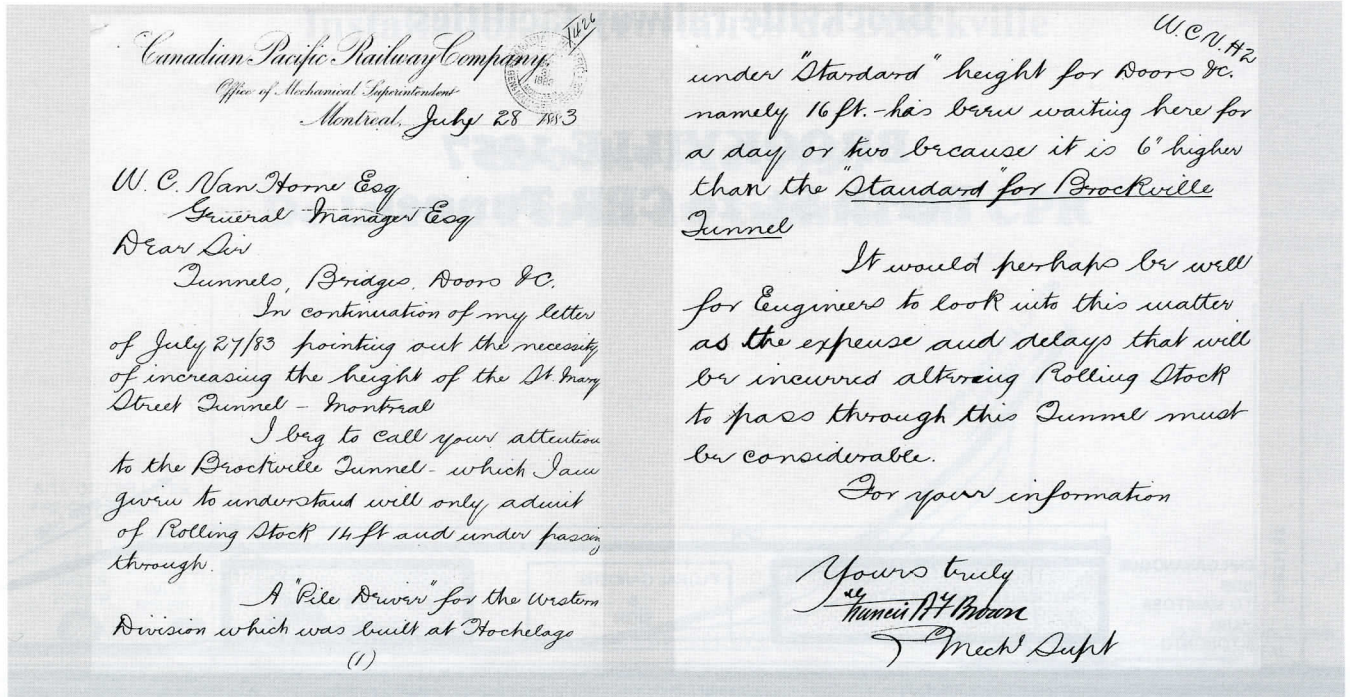 Canadian Pacific Railway Company.
X1426
Office of Mechanical Superintendent
Montreal, July 28 1883
W. C. Van Horne Esq
General Manager Esq
Dear Sir
Tunnels, Bridges, Doors &C.
In continuation of my letter
of July 27/83 pointing out the necessity
of increasing the height of the St. Mary
Street Tunnel – Montreal
I beg to call your attention
to the Brockville Tunnel – which I am
given to understand will only admit
of Rolling Stock 14 ft and under passing
through.
A "Pile Driver" for the Western
Division which was built at Hochelago
(1)
W.C.V.H2
under "Standard" height for Doors &c.
namely 16 ft. – has been waiting here for
a day or two because it is 6" higher
than the "Standard" for Brockville
Tunnel
It would perhaps be well
for Engineers to look into this matter
as the expense and delays that will
be incurred altering Rolling Stock
to pass through this Tunnel must
be considerable.
For your information
Yours truly
Francis R F Brown
Mechl Supt